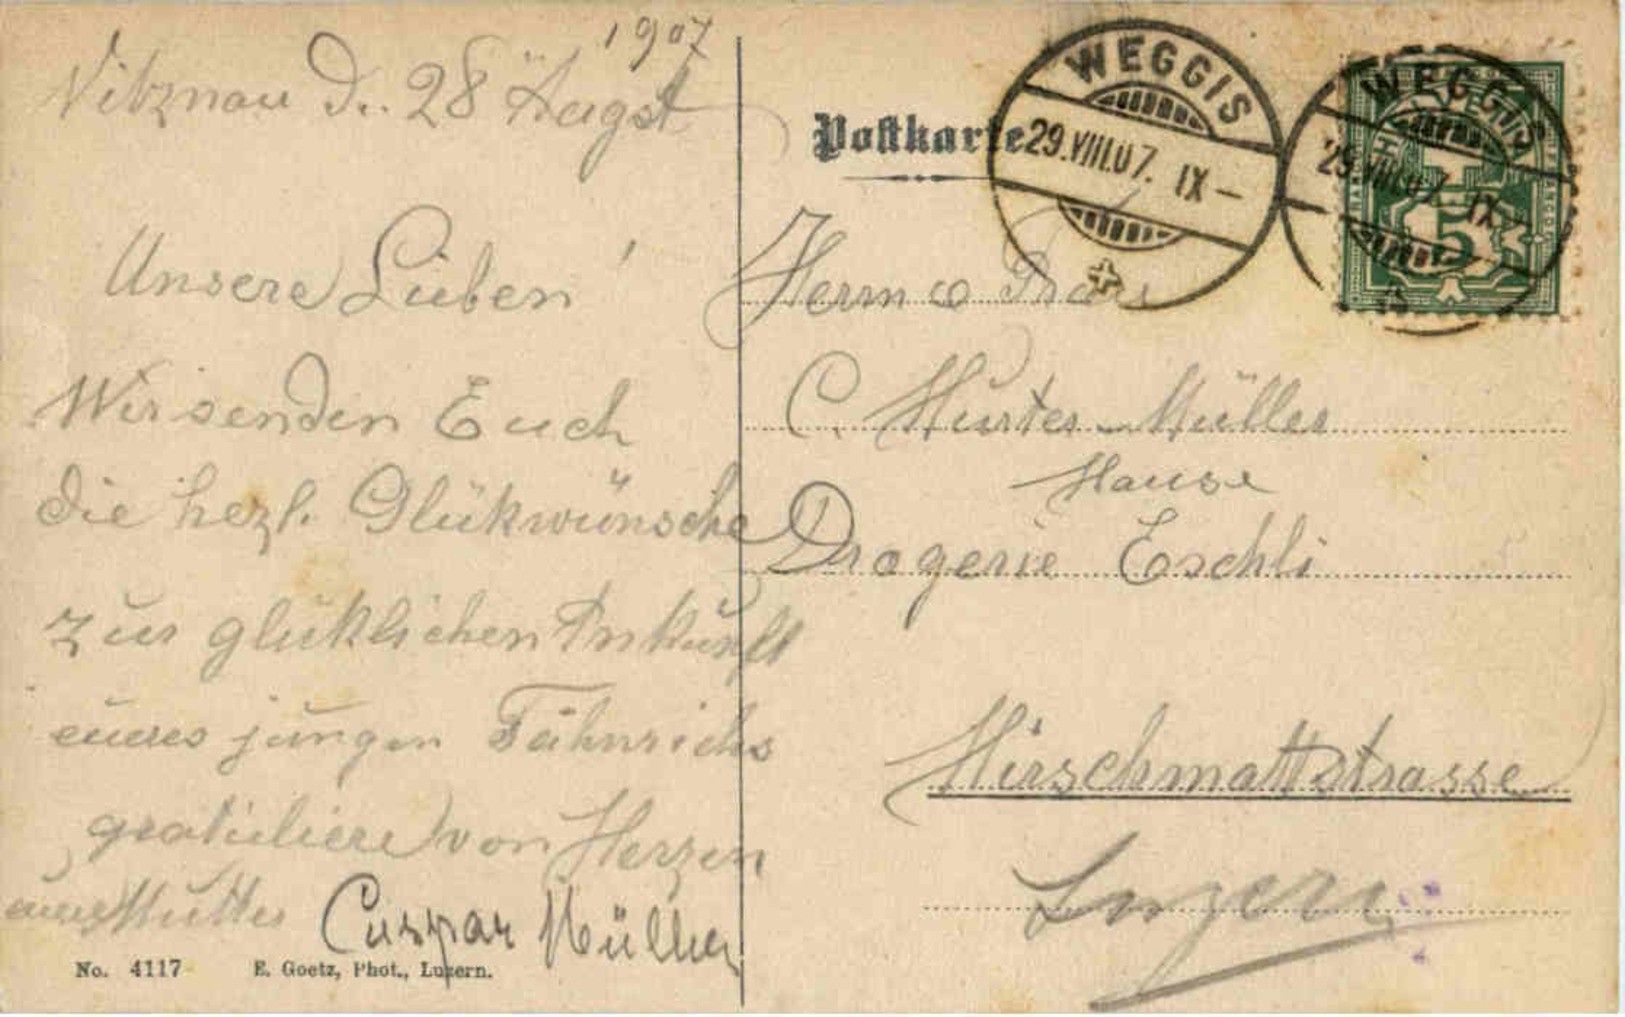 1907
Vitznau d. 28 Augst
Unsere Lieben!
Wir senden Euch
die hezl. Glükwünsche
zur glüklichen Ankunft
eueres jungen Fähnrichs
gratuliere von Herzen
eure Mutter Caspar Müller
No. 4117 E. Goetz, Phot., Luzern.
Postkarte
WEGGIS
29.VIII.07. IX-
WEGGIS
29.VIII.07. IX
5
Herrn
C. Hurter-Müller
Hause
Drogerie Eschli
Hirschmattstrasse
Luzern